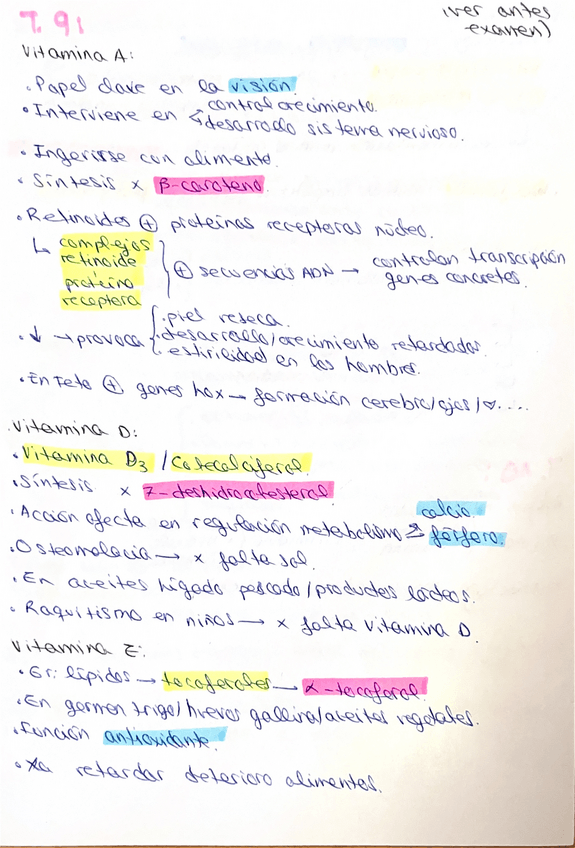 T. 91
(ver antes
examen)
Vitamina A:
• Papel clave en la visión.
• Interviene en control crecimiento.
desarrollo sistema nervioso.
• Ingerirse con alimento.
• Síntesis x β-caroteno.
• Retinoides ⊕ proteínas receptoras núcleo.
↳ complejos
retinoide
proteína
receptora
⊕ secuencias ADN → controlan transcripción
genes concretos.
• ↓ → provoca
. piel reseca.
. desarrollo/crecimiento retardados.
. estirilidad en los hombres.
• En Feto ⊕ genes hox → formación cerebro/ojos/♡....
Vitamina D:
• Vitamina D3 / Colecalciferol.
• Síntesis x 7-deshidrocolesterol
• Acción afecta en regulación metabolismo calcio.
fósforo.
• Osteomalacia → x falta sol.
• En aceites hígado pescado/productos lácteos.
• Raquitismo en niños → x falta vitamina D.
Vitamina E:
• Gr: lípidos → tocoferoles → α-tocoferol.
• En germen trigo/huevos gallina/aceites vegetales.
• Función antioxidante.
• Xa retardar deterioro alimentos.